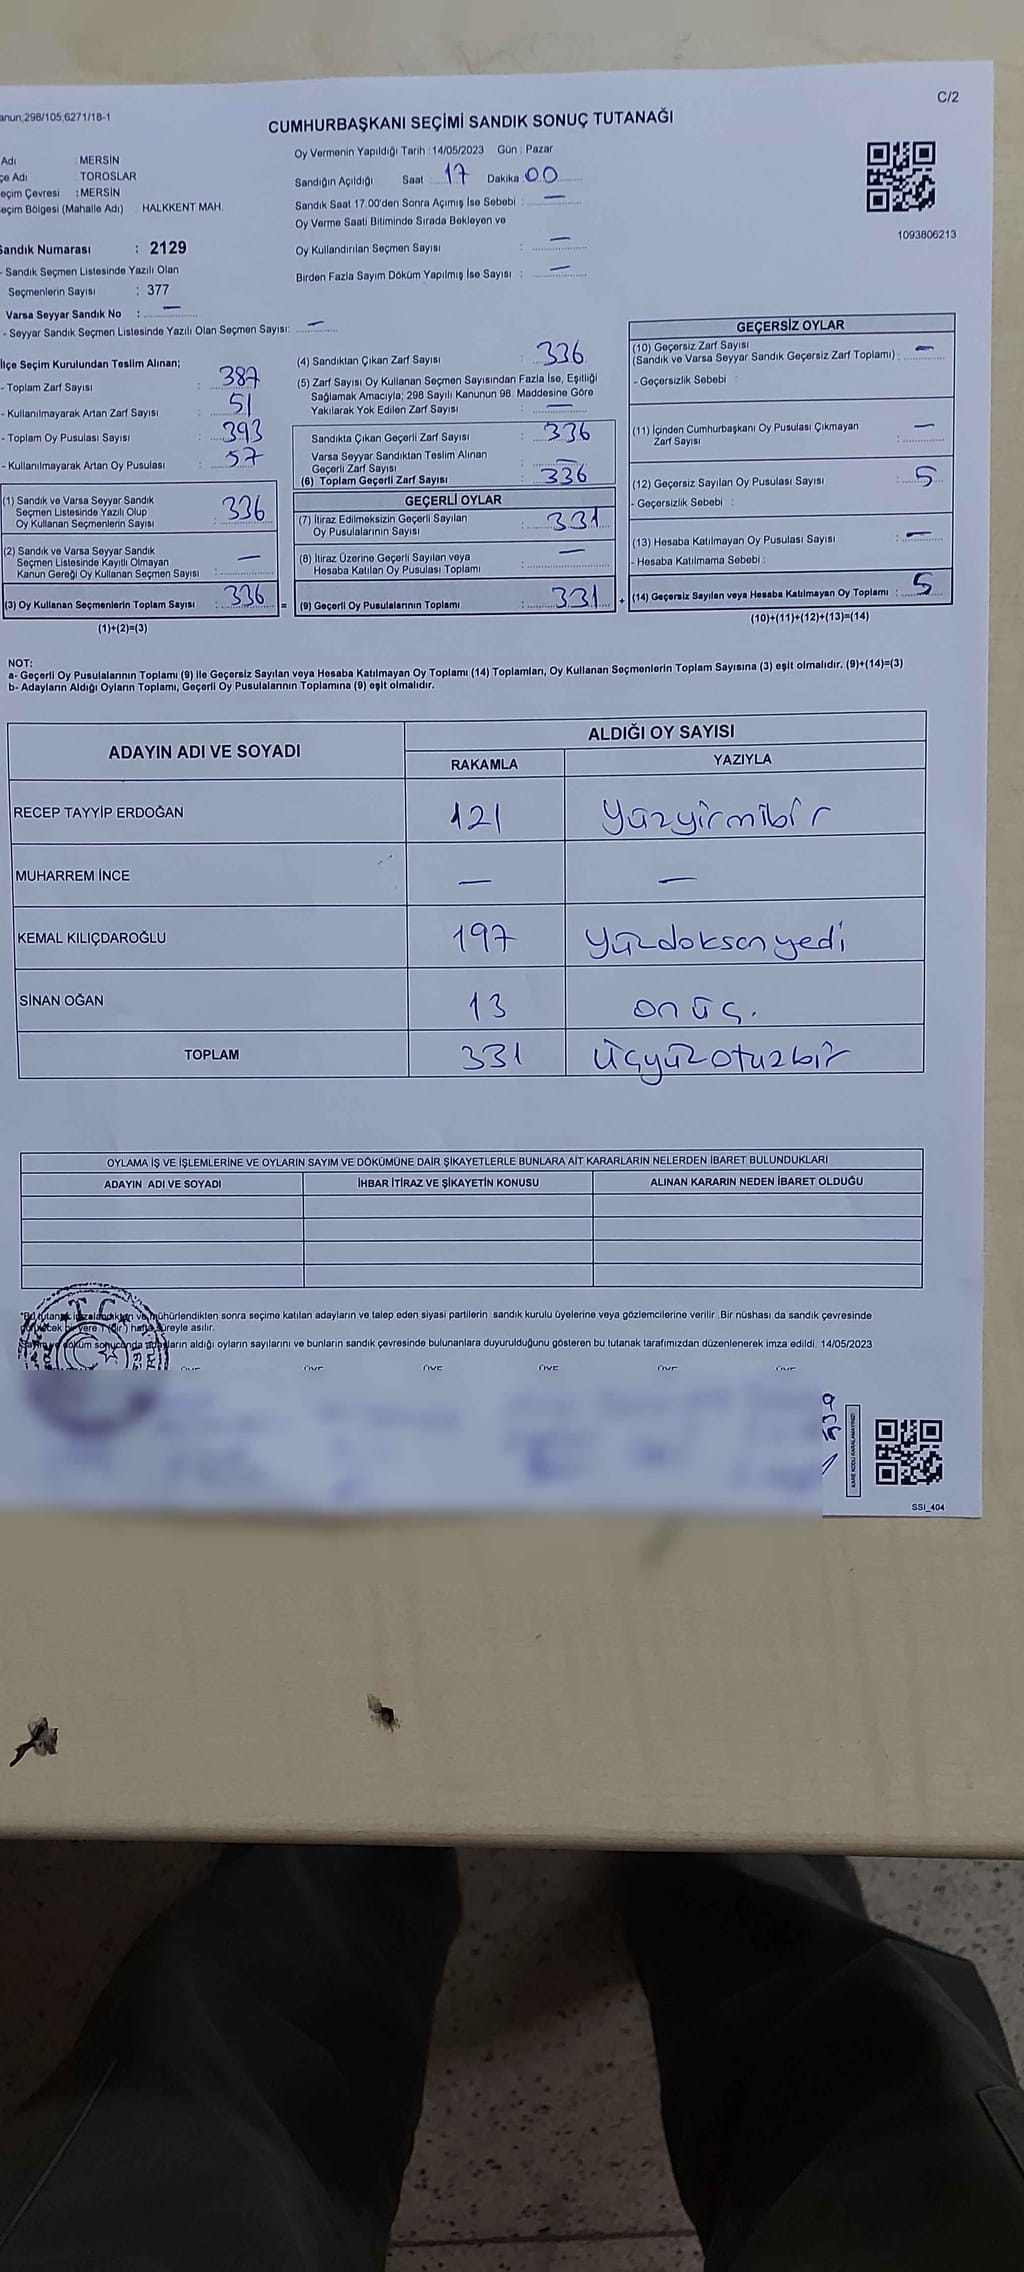 C/2
anun,298/105,6271/18-1
CUMHURBAŞKANI SEÇİMİ SANDIK SONUÇ TUTANAĞI
Adı : MERSİN
çe Adı : TOROSLAR
eçim Çevresi : MERSİN
eçim Bölgesi (Mahalle Adı) : HALKKENT MAH.
Sandık Numarası : 2129
- Sandık Seçmen Listesinde Yazılı Olan
Seçmenlerin Sayısı : 377
Varsa Seyyar Sandık No : —
- Seyyar Sandık Seçmen Listesinde Yazılı Olan Seçmen Sayısı: —
Oy Vermenin Yapıldığı Tarih : 14/05/2023 Gün : Pazar
Sandığın Açıldığı Saat : 17 Dakika : 00
Sandık Saat 17.00'den Sonra Açımış İse Sebebi : —
Oy Verme Saati Bitiminde Sırada Bekleyen ve
Oy Kullandırılan Seçmen Sayısı : —
Birden Fazla Sayım Döküm Yapılmış İse Sayısı : —
1093806213
İlçe Seçim Kurulundan Teslim Alınan;
- Toplam Zarf Sayısı : 387
- Kullanılmayarak Artan Zarf Sayısı : 51
- Toplam Oy Pusulası Sayısı : 393
- Kullanılmayarak Artan Oy Pusulası : 57
(1) Sandık ve Varsa Seyyar Sandık
Seçmen Listesinde Yazılı Olup
Oy Kullanan Seçmenlerin Sayısı : 336
(2) Sandık ve Varsa Seyyar Sandık
Seçmen Listesinde Kayıtlı Olmayan
Kanun Gereği Oy Kullanan Seçmen Sayısı : —
(3) Oy Kullanan Seçmenlerin Toplam Sayısı : 336 =
(1)+(2)=(3)
(4) Sandıktan Çıkan Zarf Sayısı : 336
(5) Zarf Sayısı Oy Kullanan Seçmen Sayısından Fazla İse, Eşitliği
Sağlamak Amacıyla; 298 Sayılı Kanunun 98. Maddesine Göre
Yakılarak Yok Edilen Zarf Sayısı : —
Sandıkta Çıkan Geçerli Zarf Sayısı : 336
Varsa Seyyar Sandıktan Teslim Alınan
Geçerli Zarf Sayısı : —
(6) Toplam Geçerli Zarf Sayısı : 336
GEÇERLİ OYLAR
(7) İtiraz Edilmeksizin Geçerli Sayılan
Oy Pusulalarının Sayısı : 331
(8) İtiraz Üzerine Geçerli Sayılan veya
Hesaba Katılan Oy Pusulası Toplamı : —
(9) Geçerli Oy Pusulalarının Toplamı : 331 +
GEÇERSİZ OYLAR
(10) Geçersiz Zarf Sayısı
(Sandık ve Varsa Seyyar Sandık Geçersiz Zarf Toplamı) : —
- Geçersizlik Sebebi :
(11) İçinden Cumhurbaşkanı Oy Pusulası Çıkmayan
Zarf Sayısı : —
(12) Geçersiz Sayılan Oy Pusulası Sayısı : 5
- Geçersizlik Sebebi :
(13) Hesaba Katılmayan Oy Pusulası Sayısı : —
- Hesaba Katılmama Sebebi :
(14) Geçersiz Sayılan veya Hesaba Katılmayan Oy Toplamı : 5
(10)+(11)+(12)+(13)=(14)
NOT:
a- Geçerli Oy Pusulalarının Toplamı (9) ile Geçersiz Sayılan veya Hesaba Katılmayan Oy Toplamı (14) Toplamları, Oy Kullanan Seçmenlerin Toplam Sayısına (3) eşit olmalıdır. (9)+(14)=(3)
b- Adayların Aldığı Oyların Toplamı, Geçerli Oy Pusulalarının Toplamına (9) eşit olmalıdır.
ADAYIN ADI VE SOYADI ALDIĞI OY SAYISI
RAKAMLA YAZIYLA
RECEP TAYYİP ERDOĞAN 121 yüzyirmibir
MUHARREM İNCE — —
KEMAL KILIÇDAROĞLU 197 yüzdoksanyedi
SİNAN OĞAN 13 onüç.
TOPLAM 331 üçyüzotuzbir
OYLAMA İŞ VE İŞLEMLERİNE VE OYLARIN SAYIM VE DÖKÜMÜNE DAİR ŞİKAYETLERLE BUNLARA AİT KARARLARIN NELERDEN İBARET BULUNDUKLARI
ADAYIN ADI VE SOYADI İHBAR İTİRAZ VE ŞİKAYETİN KONUSU ALINAN KARARIN NEDEN İBARET OLDUĞU
mühürlendikten sonra seçime katılan adayların ve talep eden siyasi partilerin sandık kurulu üyelerine veya gözlemcilerine verilir. Bir nüshası da sandık çevresinde
süreyle asılır.
T.C.
aldığı oyların sayılarını ve bunların sandık çevresinde bulunanlara duyurulduğunu gösteren bu tutanak tarafımızdan düzenlenerek imza edildi. 14/05/2023
KARE KODU KARALAMAYINIZ!
SSI_404